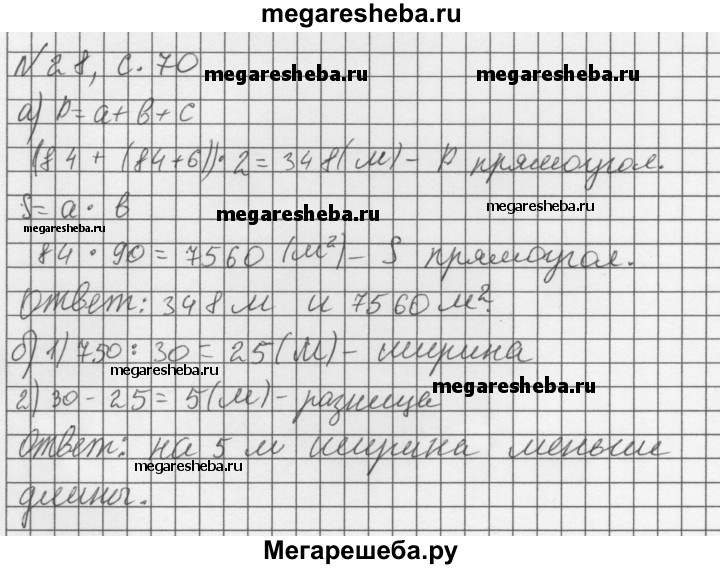 megaresheba.ru
№28, с. 70
megaresheba.ru
megaresheba.ru
а) P = a + в + c
(84 + (84+6))·2 = 348(м) – P прямоугол.
S = a · в
megaresheba.ru
megaresheba.ru
megaresheba.ru
84 · 90 = 7560 (м²) – S прямоугол.
Ответ: 348 м и 7560 м².
б) 1) 750 : 30 = 25 (м) – ширина
megaresheba.ru
2) 30 – 25 = 5 (м) – разница
megaresheba.ru
Ответ: на 5 м ширина меньше
megaresheba.ru
длины.
Мегарешеба.ру